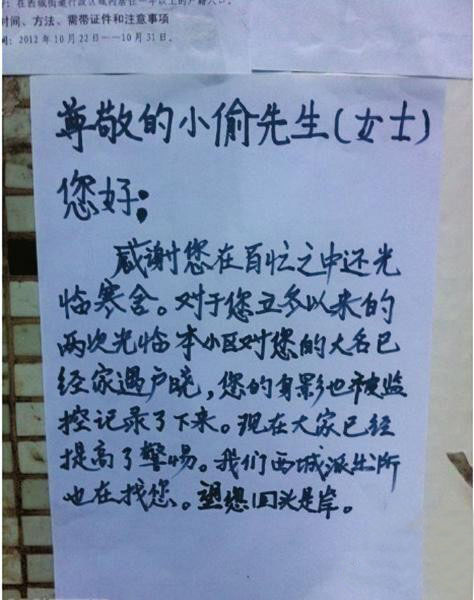 在西城街道行政区域内居住一年以上的户籍人口。
时间、方法、需带证件和注意事项
间：2012年10月22日——10月31日。
尊敬的小偷先生(女士)
您好：
感谢您在百忙之中还光
临寒舍。对于您立冬以来的
两次光临本小区对您的大名已
经家遇户晓，您的身影也被监
控记录了下来。现在大家已经
提高了警惕。我们西城派出所
也在找您。望您回头是岸。